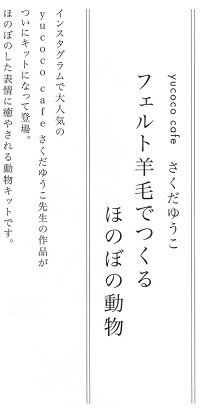 yucoco cafe さくだゆうこ
フェルト羊毛でつくる
ほのぼの動物
インスタグラムで大人気の
yucoco cafe さくだゆうこ先生の作品が
ついにキットになって登場。
ほのぼのした表情に癒やされる動物キットです。